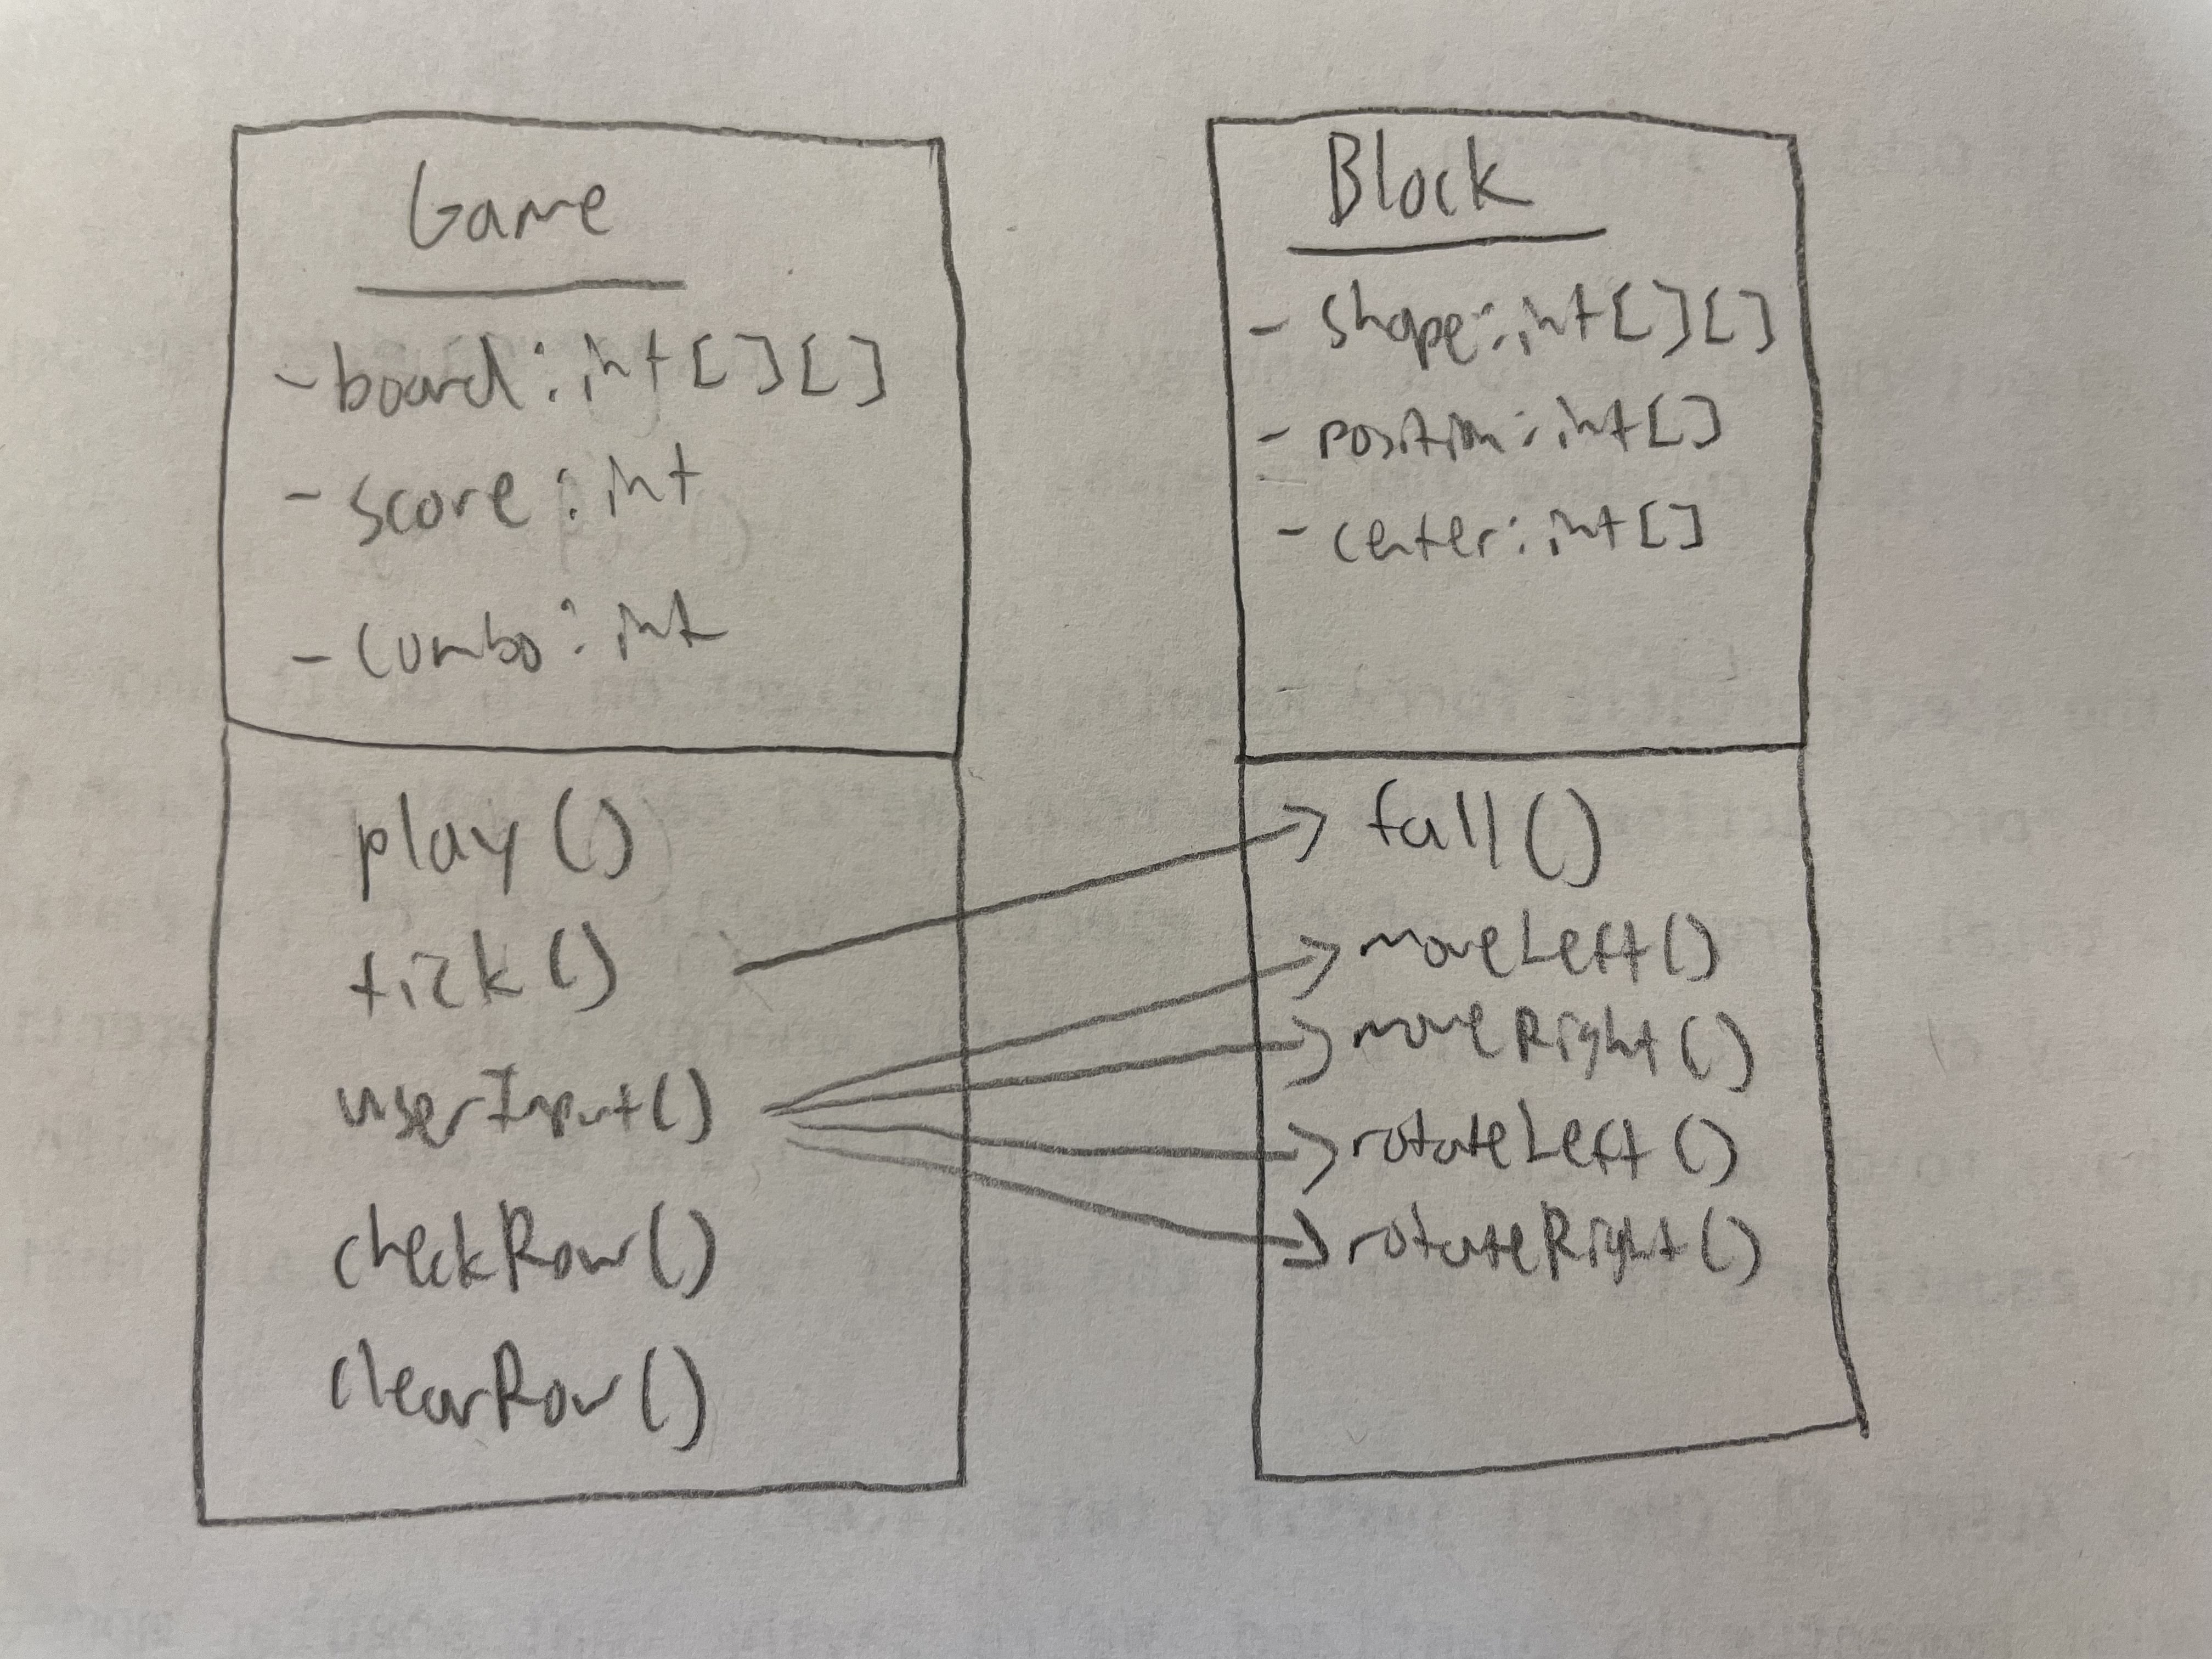 Game
- board : int [] []
- score : int
- combo : int
play ()
tick ()
userInput ()
checkRow ()
clearRow ()
Block
- shape : int [] []
- position : int []
- center : int []
fall ()
moveLeft ()
moveRight ()
rotateLeft ()
rotateRight ()